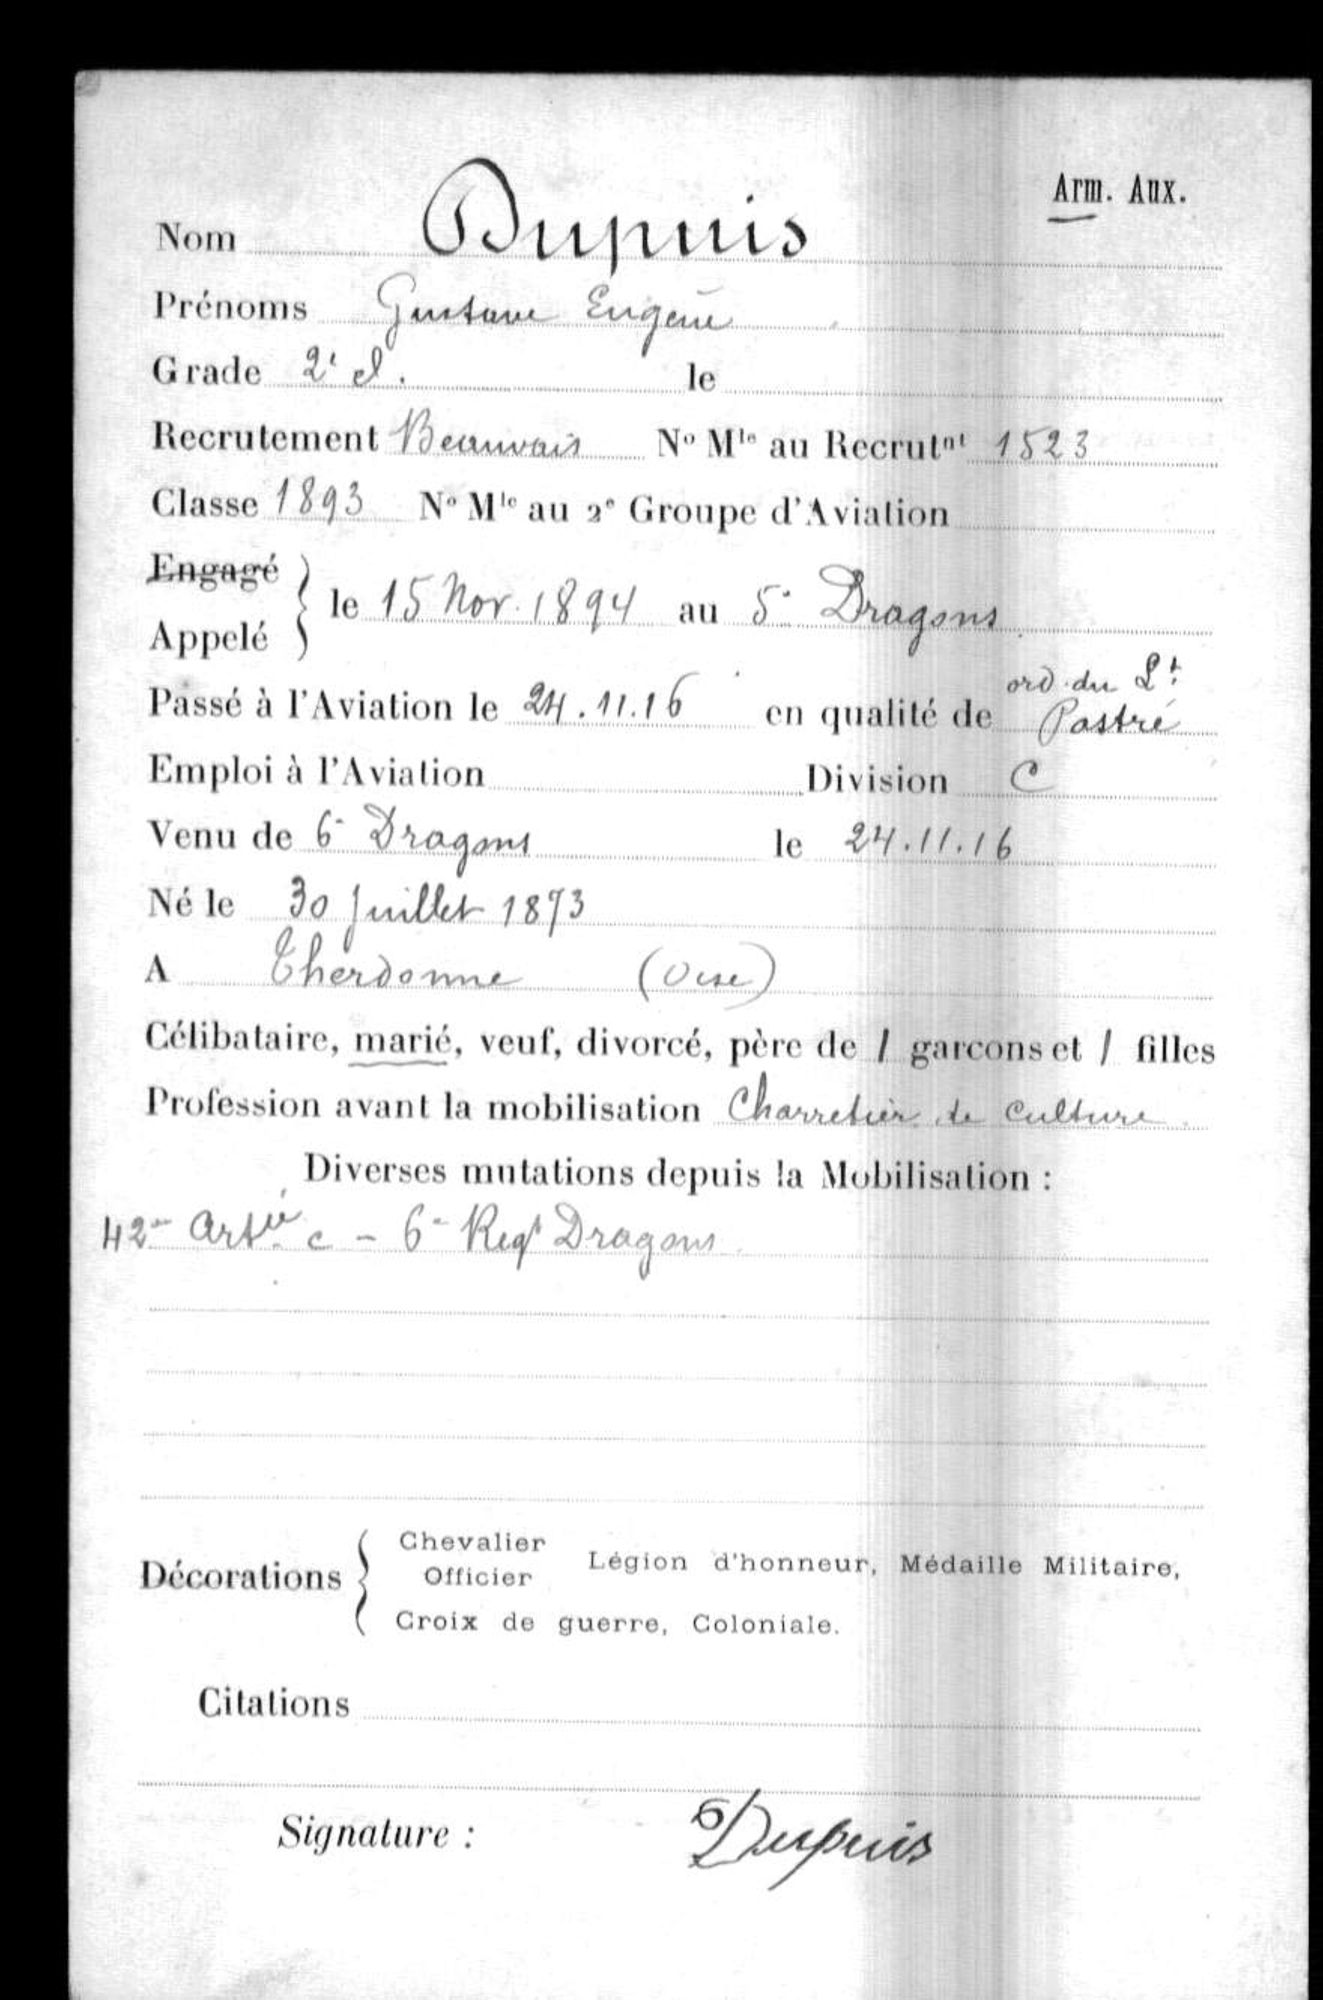 Arm. Aux.
Nom Dupuis
Prénoms Gustave Eugène
Grade 2e cl. le
Recrutement Beauvais No Mle au Recrutnt 1523
Classe 1893 No Mle au 2e Groupe d'Aviation
Engagé
Appelé } le 15 Nov. 1894 au 5e Dragons
Passé à l'Aviation le 24.11.16 en qualité de ord. du Lt. Pastré
Emploi à l'Aviation Division C
Venu de 6e Dragons le 24.11.16
Né le 30 Juillet 1873
A Therdonne (Oise)
Célibataire, marié, veuf, divorcé, père de 1 garcons et 1 filles
Profession avant la mobilisation Charretier de culture
Diverses mutations depuis la Mobilisation :
42e Artie c - 6e Regt Dragons
Décorations { Chevalier
Officier Légion d'honneur, Médaille Militaire,
Croix de guerre, Coloniale.
Citations
Signature : GDupuis